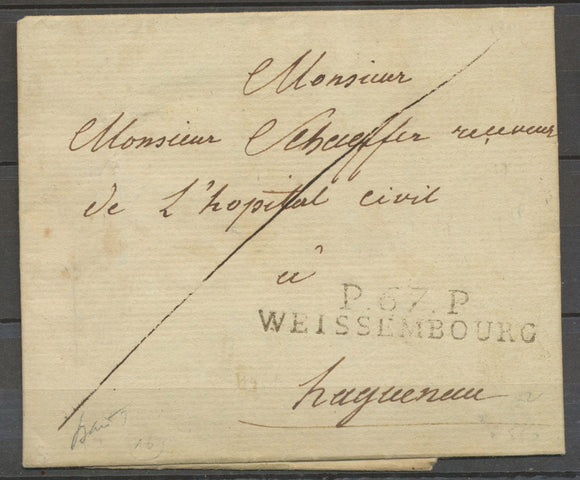 Monsieur
Monsieur Schaeffer receveur
de L'hopital civil
à
P.67.P
WEISSEMBOURG
haguenau